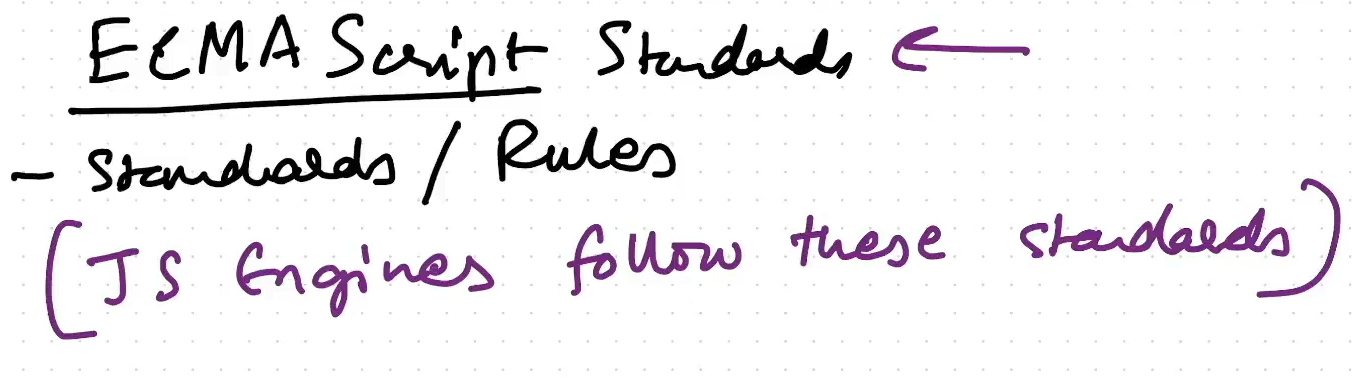 ECMA Script Standards ←
- Standards / Rules
(JS Engines follow these standards)